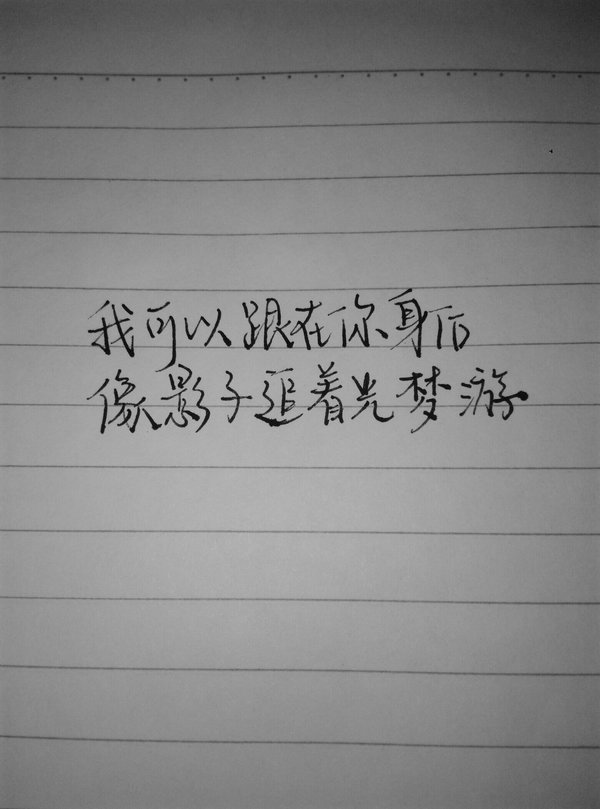 我可以跟在你身后
像影子追着光梦游